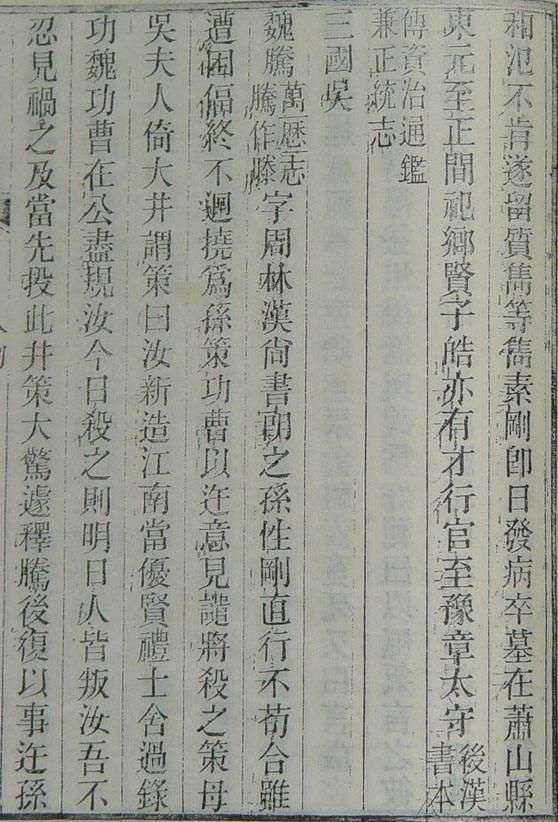 和汜不肯遂留質儁等儁素剛卽日發病卒墓在蕭山縣
東元至正間祀鄉賢子皓亦有才行官至豫章太守後漢書本
傳資治通鑑兼正統志
三國吳
魏騰萬歷志騰作滕字周林漢尚書朝之孫性剛直行不苟合雖
遭困偪終不迴撓爲孫策功曹以迕意見譴將殺之策母
吳夫人倚大井謂策曰汝新造江南當優賢禮士舍過錄
功魏功曹在公盡規汝今日殺之則明日人皆叛汝吾不
忍見禍之及當先投此井策大驚遽釋騰後復以事迕孫